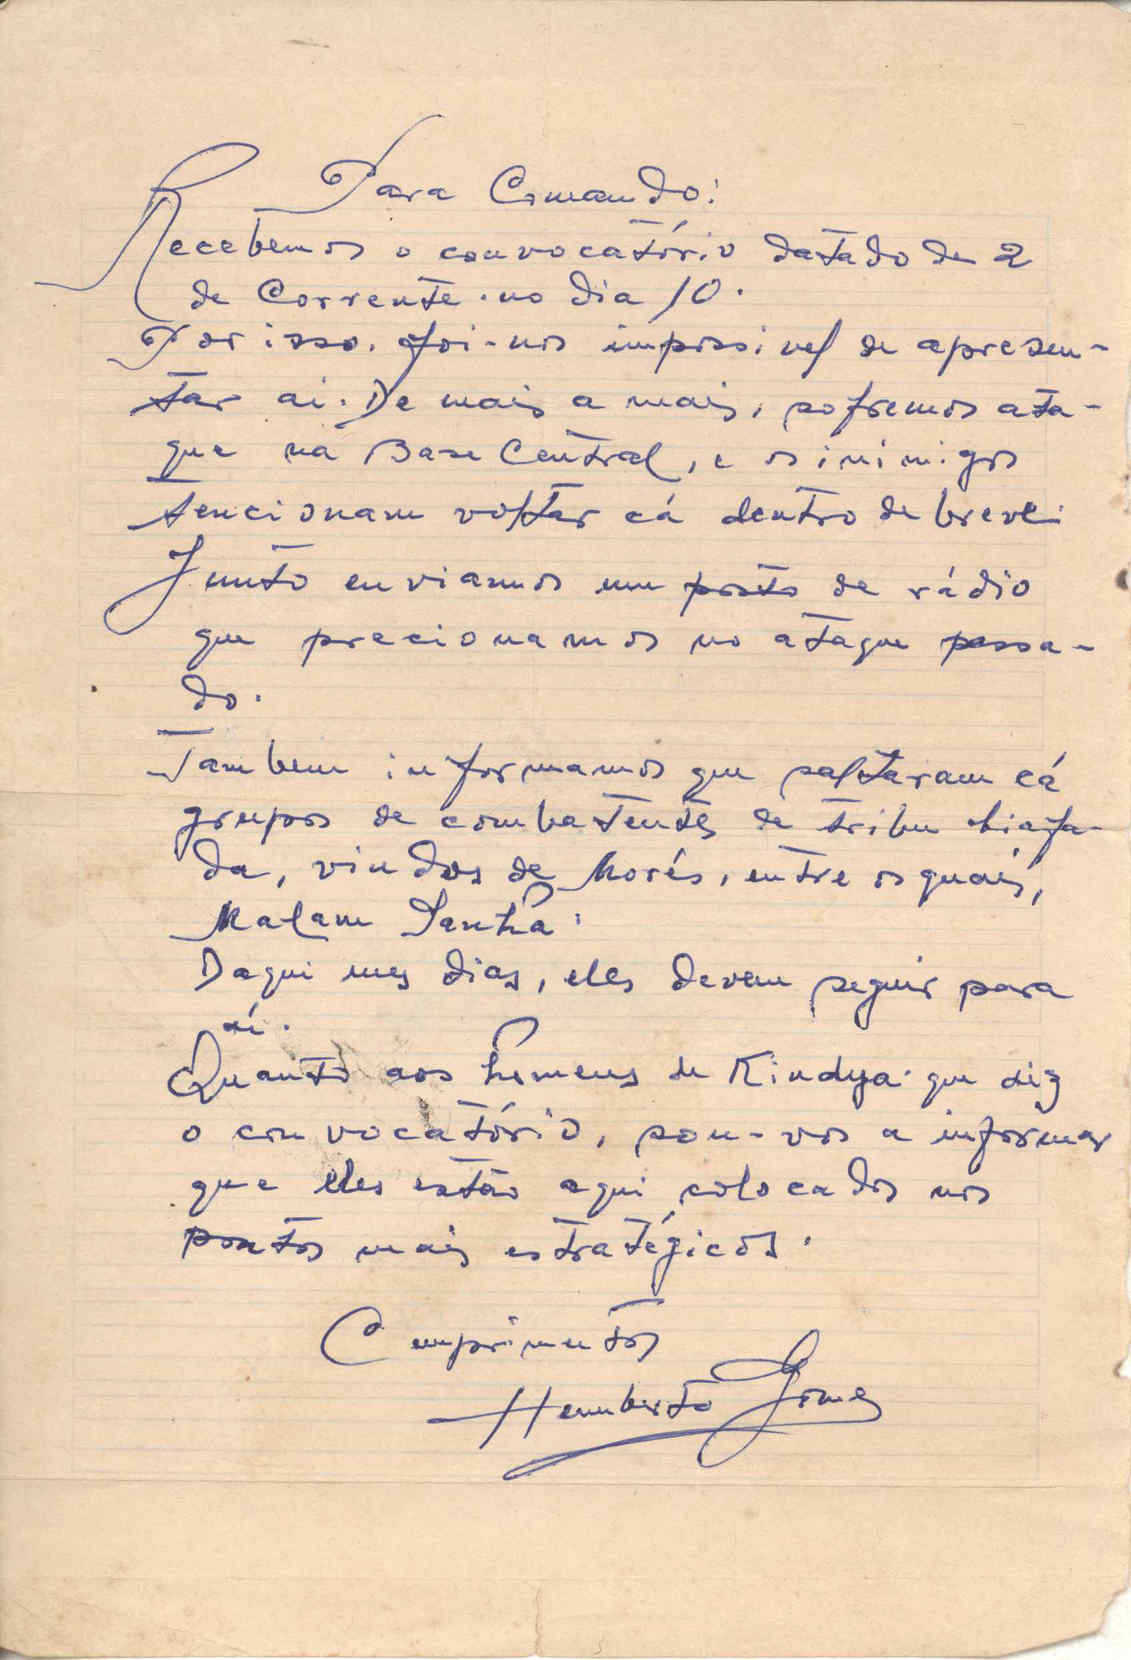 Para Comando:
Recebemos o convocatório datado de 2
de Corrente. no dia 10.
Por isso. foi-nos impossivel de apresen-
tar ai. De mais a mais, sofremos ata-
que na Base Central, e os inimigos
tencionam voltar cá dentro de breve.
Junto enviamos um posto de rádio
que precionamos no ataque passa-
do.
Tambem informamos que saltaram cá
grupos de combatentes de tribu biafa-
da, vindos de Morés, entre os quais,
Malam Sanhá.
Daqui uns dias, eles devem seguir para
aí.
Quanto aos homens de Kindya. que diz
o convocatório, sou-vos a informar
que eles estão aqui colocados nos
pontos mais estratégicos.
Cumprimentos
Humberto Gomes